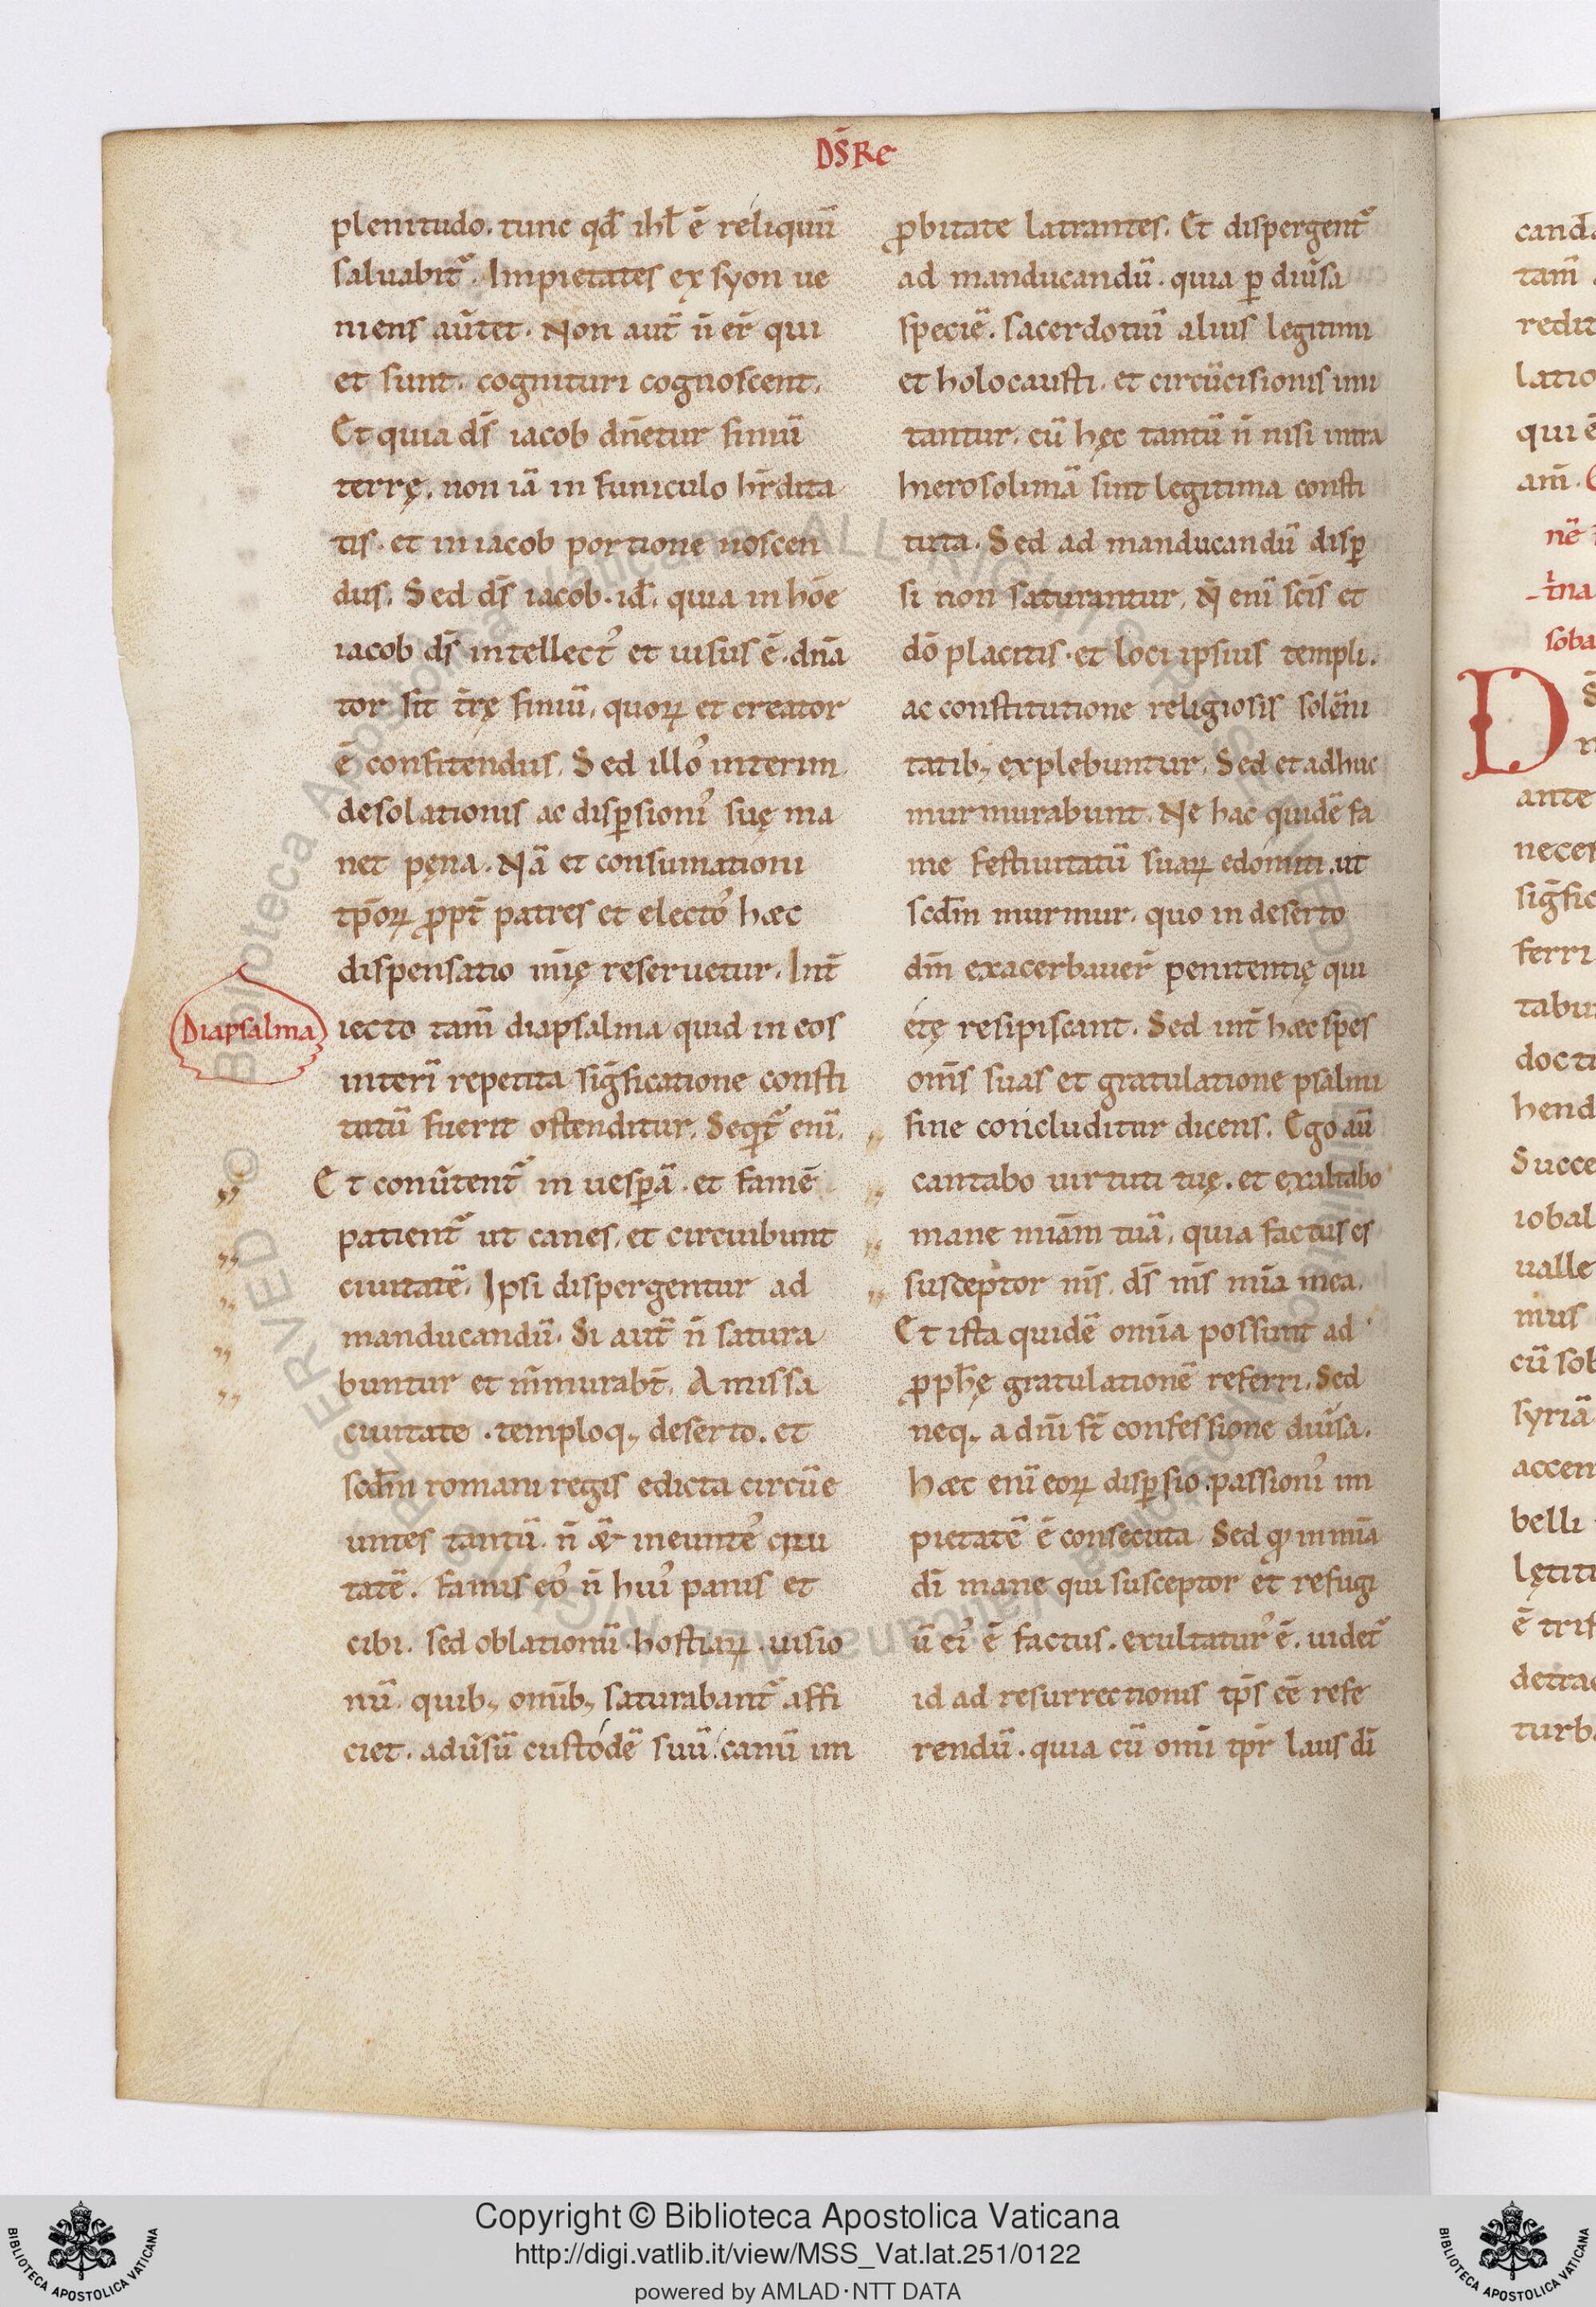 DS̄ Re
plenitudo. tunc qd̄ ihl̄ ē reliquū
saluabit᷑. Impietates ex syon ue
niens au̅tet. Non aut̄ n̄ er̄ qui
et sunt. cognituri cognoscent.
Et quia ds̄ iacob dn̄etur finiū
terrę. non iā in funiculo hr̄dita
tis. et in iacob portione noscen
dus. Sed ds̄ iacob. id̄. quia in hōe
iacob ds̄ intellect᾽ et uisus ē. dn̄a
tor sit tr̄ę finiū. quoꝝ et creator
ē confitendus. Sed illo᾽ interim
desolationis ac disꝑsioni᾽ suę ma
net pęna. Nā et consumationi
tp̄oꝝ ꝓpt̄ patres et electo᾽ hæc
dispensatio mīę reseruetur. Int̄
Diapsalma
iecto tam̄ diapsalma quid in eos
interī repetita sig̅ficatione consti
tutū fuerit ostenditur. Seqt᷑ enī.
Et conu̅tent᷑ in uesꝑā. et famē
patient᷑ ut canes. et circuibunt
ciuitatē. Ipsi dispergentur ad
manducandū. Si aut̄ n̄ satura
buntur et m̄murabt̄. Amissa
ciuitate. temploq; deserto. et
scdm̄ romani regis edicta circūe
untes tantū. n̄ & ineunte᾽ ciui
tatē. famis eo᾽ n̄ hui᾽ panis et
cibi. sed oblationū. hostiaꝝ. uisio
nū. quib; omīb; saturabant᷑ affi
ciet. adu̅sū custodē suū. canū im
ꝓbitate latrantes. Et dispergent᷑
ad manducandū. quia ꝑ diu̅sa
speciē. sacerdotiū aliuis legitimi
et holocausti. et circūcisionis imi
tantur. cū hęc tantū n̄ nisi intra
hierosolimā sint legitima consti
tuta. Sed ad manducandū disꝑ
si non saturantur. Nͨ enī scīs et
dō placitis. et loci ipsius templi.
ac constitutione religiosis solēni
tatib; explebuntur. Sed et adhuc
murmurabunt. Ne hac quidē fa
me festiuitatū suaꝝ edomiti. ut
scdm̄ murmur. quo in deserto
dm̄ exacerbauer̄ penitentię qui
etę resipiscant. Sed int̄ hæc spes
om̅s suas et gratulatione psalmi
fine concluditur dicens. Ego aū
cantabo uirtuti tuę. et exaltabo
mane mīam tuā. quia factus es
susceptor m̅s. ds̄ m̅s mīa mea.
Et ista quidē omīa possunt ad
ꝓph̄ę gratulationē referri. Sed
neq; a dnī st̄ confessione diu̅sa.
Hæc enī eoꝝ disꝑsio. passioni᾽ im
pietatē ē consecuta. Sed qͦ in mīa
dī mane qui susceptor et refugi
ū ei᾽ ē factus. exultatur᾽ ē. uidet᷑
id ad resurrectionis tp̄s ēē refe
rendū. quia cū omī tp̄r laus dī
cand
tam̄
redit
latio
qui ē
am̄.
nē
soba
D
ante
neces
sig̅fic
ferri
tabu
docti
hend
Succe
iobal
ualle
mus
cū sob
syriā
accen
belli
lętiti
ē trif
detra
turb
Copyright © Biblioteca Apostolica Vaticana
http://digi.vatlib.it/view/MSS_Vat.lat.251/0122
powered by AMLAD·NTT DATA
BIBLIOTECA APOSTOLICA VATICANA
BIBLIOTECA APOSTOLICA VATICANA